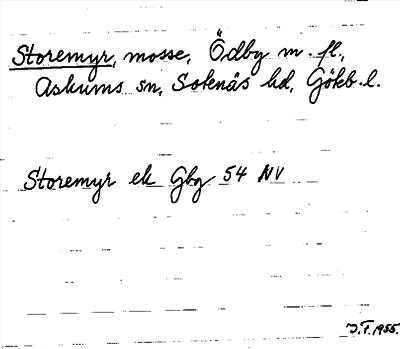 Storemyr, mosse, Ödby m. fl.,
Askums sn, Sotenäs hd, Göteb. l.
Storemyr ek Gbg 54 NV
J.F. 1955.